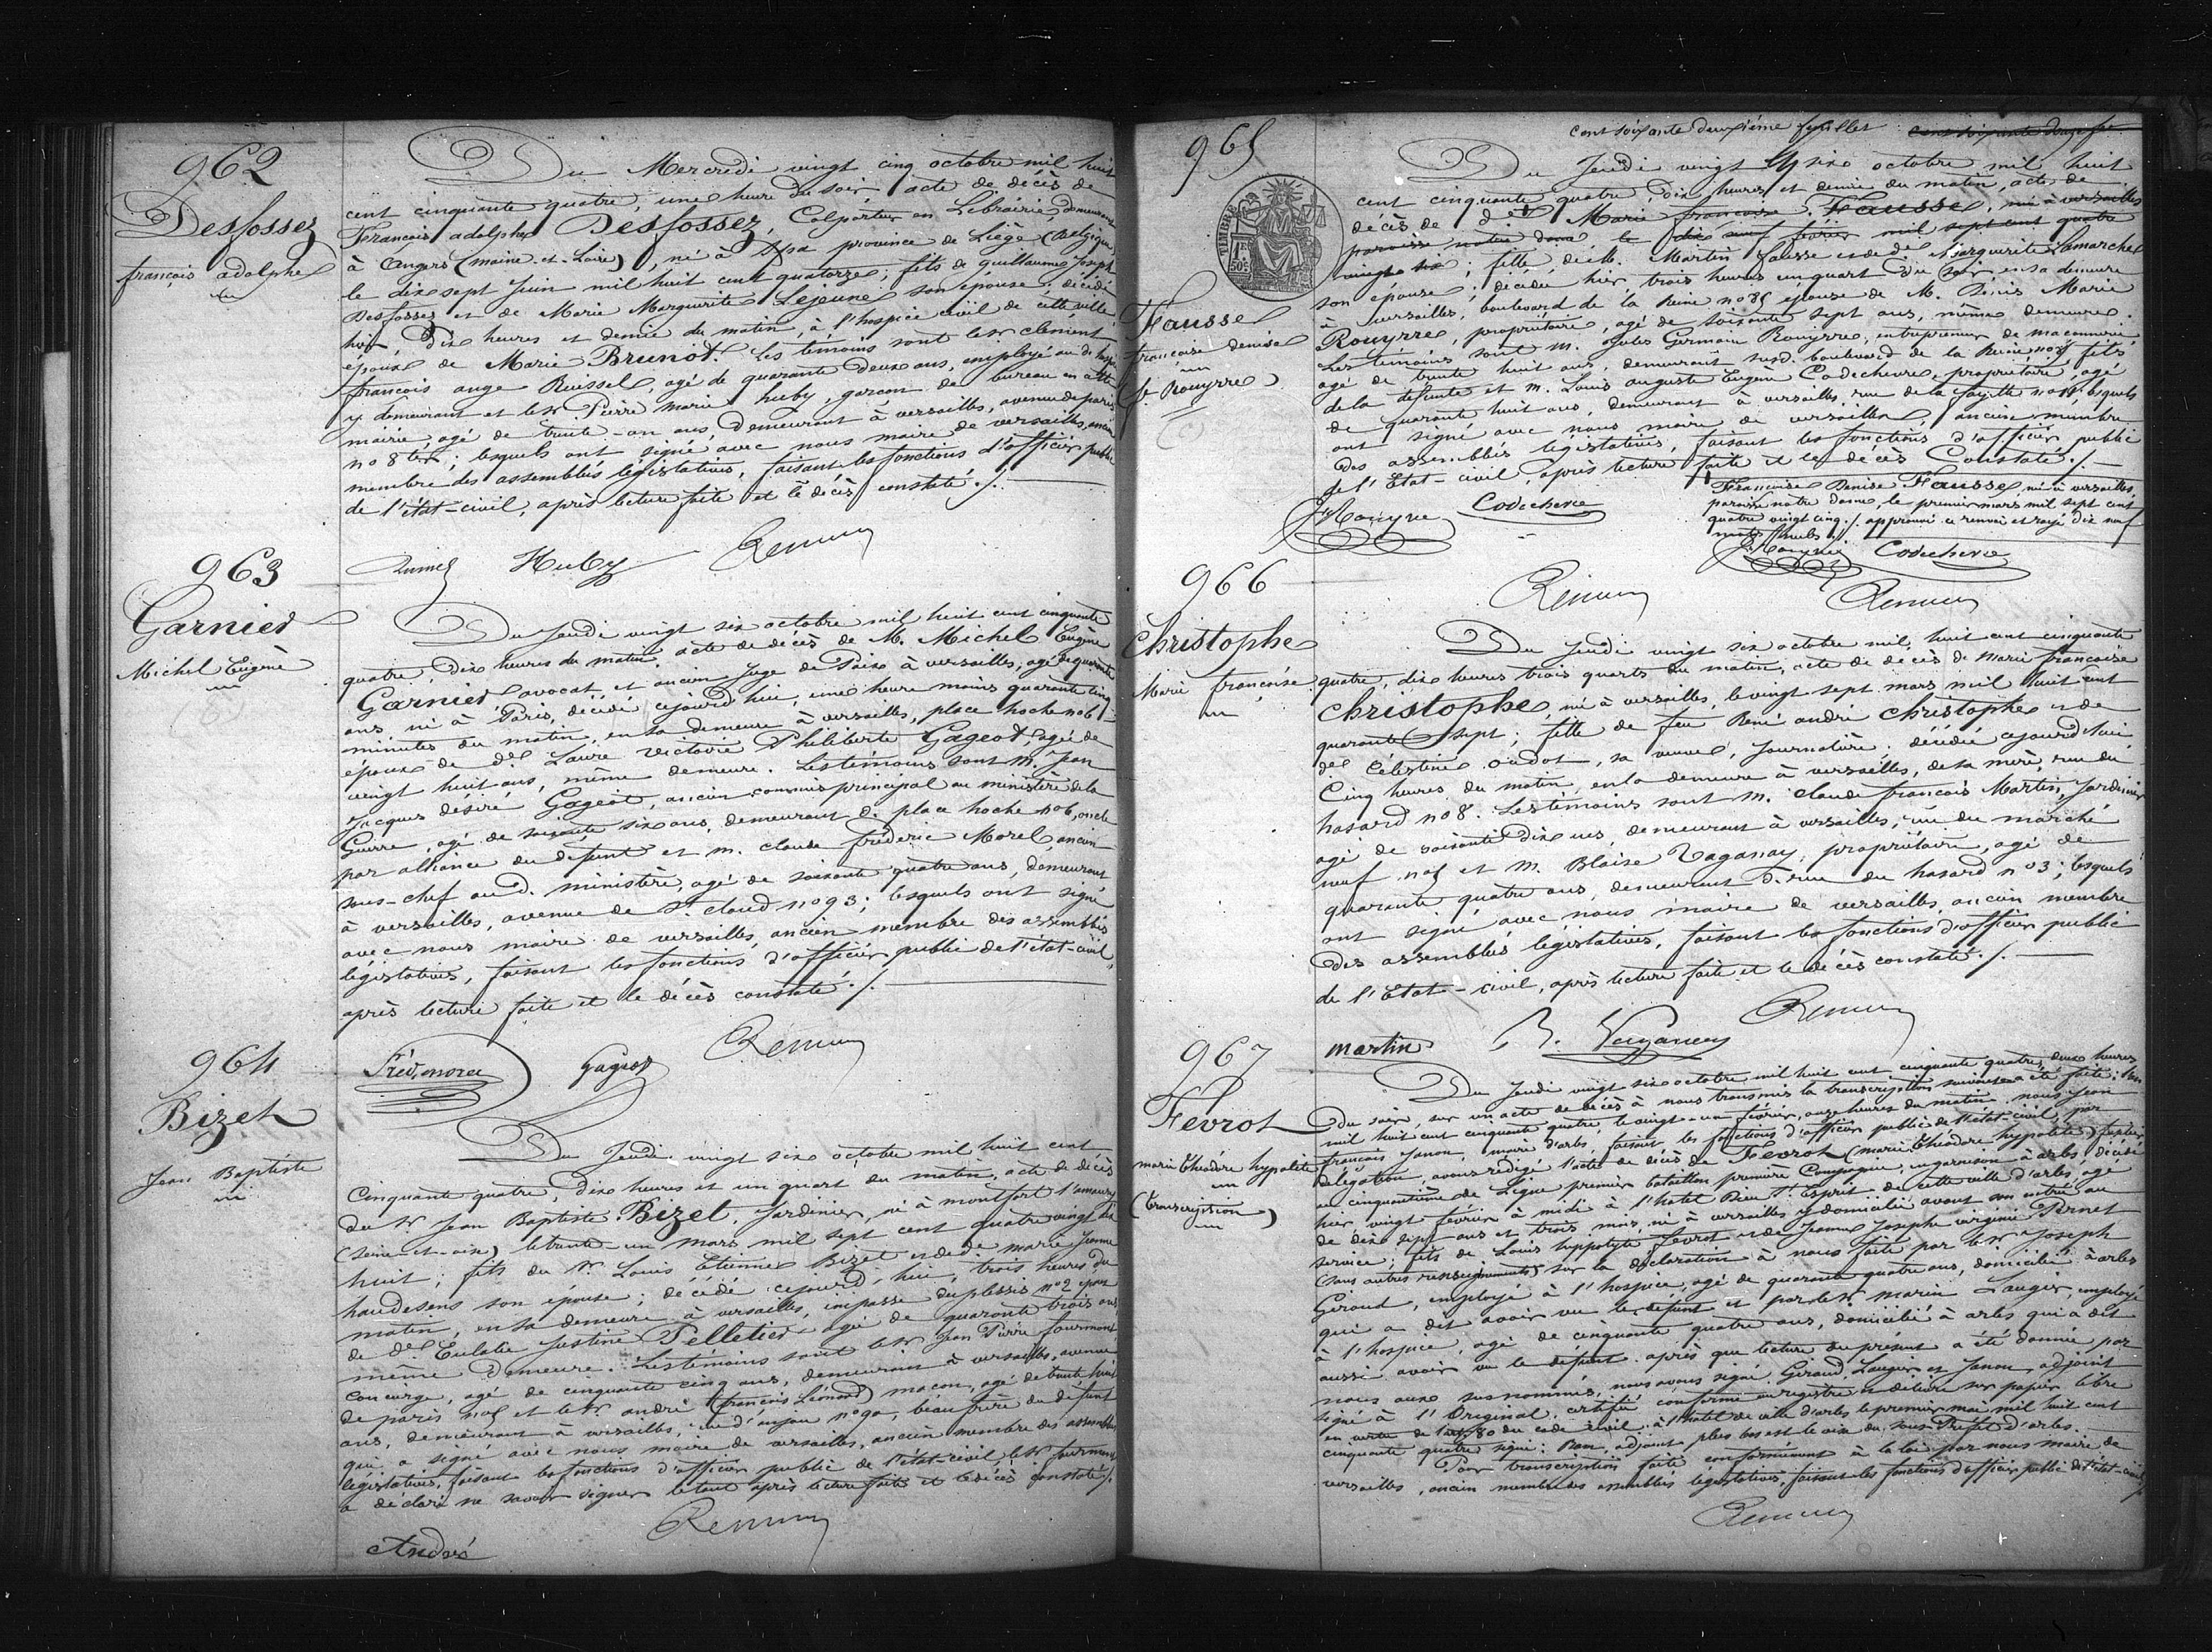 962
Desfossez
françois adolphe
Du Mercredi vingt cinq octobre mil huit
cent cinquante quatre, une heure du soir, acte de décès de
François adolphe Desfossez, Colporteur en Librairie, demeurant
à Angers (maine-et-Loire), né à Spa province de Liège (Belgique)
le dix sept juin mil huit cent quatorze; fils de guillaume Joseph
Desfossez et de Marie Marguerite Lejeune son épouse; décédé
hier dix heures et demie du matin, à l'hospice civil de cette ville,
époux de Marie Brunot. Les témoins sont le Sr clément
françois ange Ruissel, agé de quarante deux ans, employé au d. hospice
y demeurant et le Sr Pierre marie huby, garçon de bureau en cette
mairie, agé de trente-un ans, demeurant à versailles, avenue de paris
no 8 ter; lesquels ont signé avec nous maire de versailles, ancien
membre des assemblées législatives, faisant les fonctions d'officier public
de l'état-civil, après lecture faite et le décès constaté ./.
Huby Remilly
963
Garnier
Michel Eugène
Du Jeudi vingt six octobre mil huit cent cinquante
quatre, dix heures du matin, acte de décès de M. Michel Eugène
Garnier, avocat, et ancien Juge de Paix à versailles, agé de quarante
ans, né à Paris, décédé cejourd'hui, une heure moins quarante cinq
minutes du matin, en sa demeure à versailles, place hoche no 6
époux de de Laure Victoire Philiberte Gageot, agée de
vingt huit ans, même demeure. Les témoins sont M. Jean
Jacques désiré Gageot, ancien commis principal au ministère de la
Guerre, agé de soixante six ans, demeurant d. place hoche no 6, oncle
par alliance du défunt et m. claude frédéric Morel ancien
sous-chef au d. ministère, agé de soixante quatre ans, demeurant
à versailles, avenue de St cloud no 93; lesquels ont signé
avec nous maire de versailles, ancien membre des assemblées
législatives, faisant les fonctions d'officier public de l'état-civil,
après lecture faite et le décès constaté ./.
Fréd. morel Gageot Remilly
964
Bizet
Jean Baptiste
Du Jeudi vingt six octobre mil huit cent
Cinquante quatre, dix heures et un quart du matin, acte de décès
du Sr Jean Baptiste Bizet, Jardinier, né à montfort l'amaury
(seine-et-oise) le trente-un mars mil sept cent quatre vingt dix
huit; fils du Sr Louis Etienne Bizet et de de marie Jeanne
haudesens son épouse; décédé cejourd'hui, trois heures du
matin, en sa demeure à versailles, impasse duplessis no 2, époux
de de Eulalie Justine Pelletier, agée de quarante trois ans
même demeure. Les témoins sont le Sr Jean Pierre fourmont
concierge, agé de cinquante cinq ans, demeurant à versailles, avenue
de paris no 5 et le Sr andré (françois Léonard) maçon, agé de trente huit
ans, demeurant à versailles, rue d'anjou no 90, beau frère du défunt
qui a signé avec nous maire de versailles, ancien membre des assemblées
législatives, faisant les fonctions d'officier public de l'état-civil, le Sr fourmont
a déclaré ne savoir signer le tout après lecture faite et le décès constaté ./.
Remilly
André
cent soixante deuxième feuillet
965
TIMBRE
1F
50c
Fausse
françoise denise
f. Rouyrre
Du Jeudi vingt six octobre mil huit
cent cinquante quatre, dix heures et demie du matin, acte de
décès de de Marie françoise Fausse, née à versailles
paroisse notre dame le dix neuf février mil sept cent quatre
vingt six; fille de M. Martin fausse et de de Marguerite Lamarche
son épouse; décédée hier, trois heures un quart du soir en sa demeure
à versailles, boulevard de la Reine no 85 épouse de M. Dénis Marie
Rouyrre, propriétaire, agé de soixante sept ans, même demeure.
Les témoins sont M. Jules Germain Rouyrre, entrepreneur de maçonnerie
agé de trente huit ans, demeurant sus d. boulevard de la Reine no 85, fils
de la défunte et m. Louis auguste Eugène Codechevre, propriétaire, agé
de quarante huit ans, demeurant à versailles, rue de la fayette no , lesquels
ont signé avec nous maire de versailles, ancien membre
des assemblées législatives, faisant les fonctions d'officier public
de l'Etat-civil, après lecture faite et le décès Constaté ./.
Françoise Denise Fausse, née à versailles,
paroisse notre dame, le premier mars mil sept cent
quatre vingt cinq ./. approuvé ce renvoi et rayé dix neuf
mots nuls ./.
J. Rouyrre Codechevre
J. Rouyrre Codechevre
Remilly Remilly
966
Christophe
Marie françoise
Du Jeudi vingt six octobre mil huit cent cinquante
quatre, dix heures trois quarts du matin, acte de décès de Marie françoise
Christophe, née à versailles, le vingt-sept mars mil huit cent
quarante sept; fille de feu René andré Christophe et de
de Célestine oudot, sa veuve, Journalière; décédée cejourd'hui
Cinq heures du matin, en la demeure à versailles, de sa mère, rue du
hasard no 8. Les témoins sont m. claude françois Martin, Jardinier
agé de soixante dix ans, demeurant à versailles, rue du marché
neuf no 5 et M. Blaise Vaganay, propriétaire, agé de
quarante quatre ans, demeurant d. rue du hasard no 3; lesquels
ont signé avec nous maire de versailles, ancien membre
des assemblées législatives, faisant les fonctions d'officier public
de l'Etat-civil, après lecture faite et le décès constaté ./.
martin B. Vaganay Remilly
967
Fevrot
marie théodore hypolite
(transcription)
Du Jeudi vingt six octobre mil huit cent cinquante quatre, deux heures
du soir, sur un acte de décès à nous transmis la transcription suivante a été faite: L'an
mil huit cent cinquante quatre, le vingt-un février, onze heures du matin, nous Jean
françois Janon, maire d'arles, faisant les fonctions d'officier public de l'état-civil, par
délégation, avons rédigé l'acte de décès de Fevrot (marie Théodore hypolite) fusilier
au cinquantième de Ligne premier bataillon première Compagnie, en garnison à arles, décédé
hier vingt février à midi à l'hotel Dieu St Esprit de cette ville d'arles, agé
de dix sept ans et trois mois, né à versailles y domicilié avant son entrée au
service; fils de Louis hyppolyte fevrot et de Jeanne Josephe virginie Pernet
(sans autres renseignements) sur la déclaration à nous faite par le Sr Joseph
Giraud, employé à l'hospice, agé de quarante quatre ans, domicilié à arles
qui a dit avoir vu le défunt et par le Sr marin Laugier, employé
à l'hospice, agé de cinquante quatre ans, domicilié à arles qui a dit
aussi avoir vu le défunt. après que lecture du présent a été donnée par
nous aux susnommés, nous avons signé. Giraud, Laugier et Janon, adjoint
signé à l'Original. certifié conforme au registre et délivré sur papier libre
en vertu de l'art. 80 du code civil, à l'hotel de ville d'arles le premier mai mil huit cent
cinquante quatre signé: , adjoint plus bas est le visa du sous Préfet d'arles.
Pour transcription faite conformément à la loi par nous maire de
versailles, ancien membre des assemblées législatives, faisant les fonctions d'officier public de l'état-civil ./.
Remilly